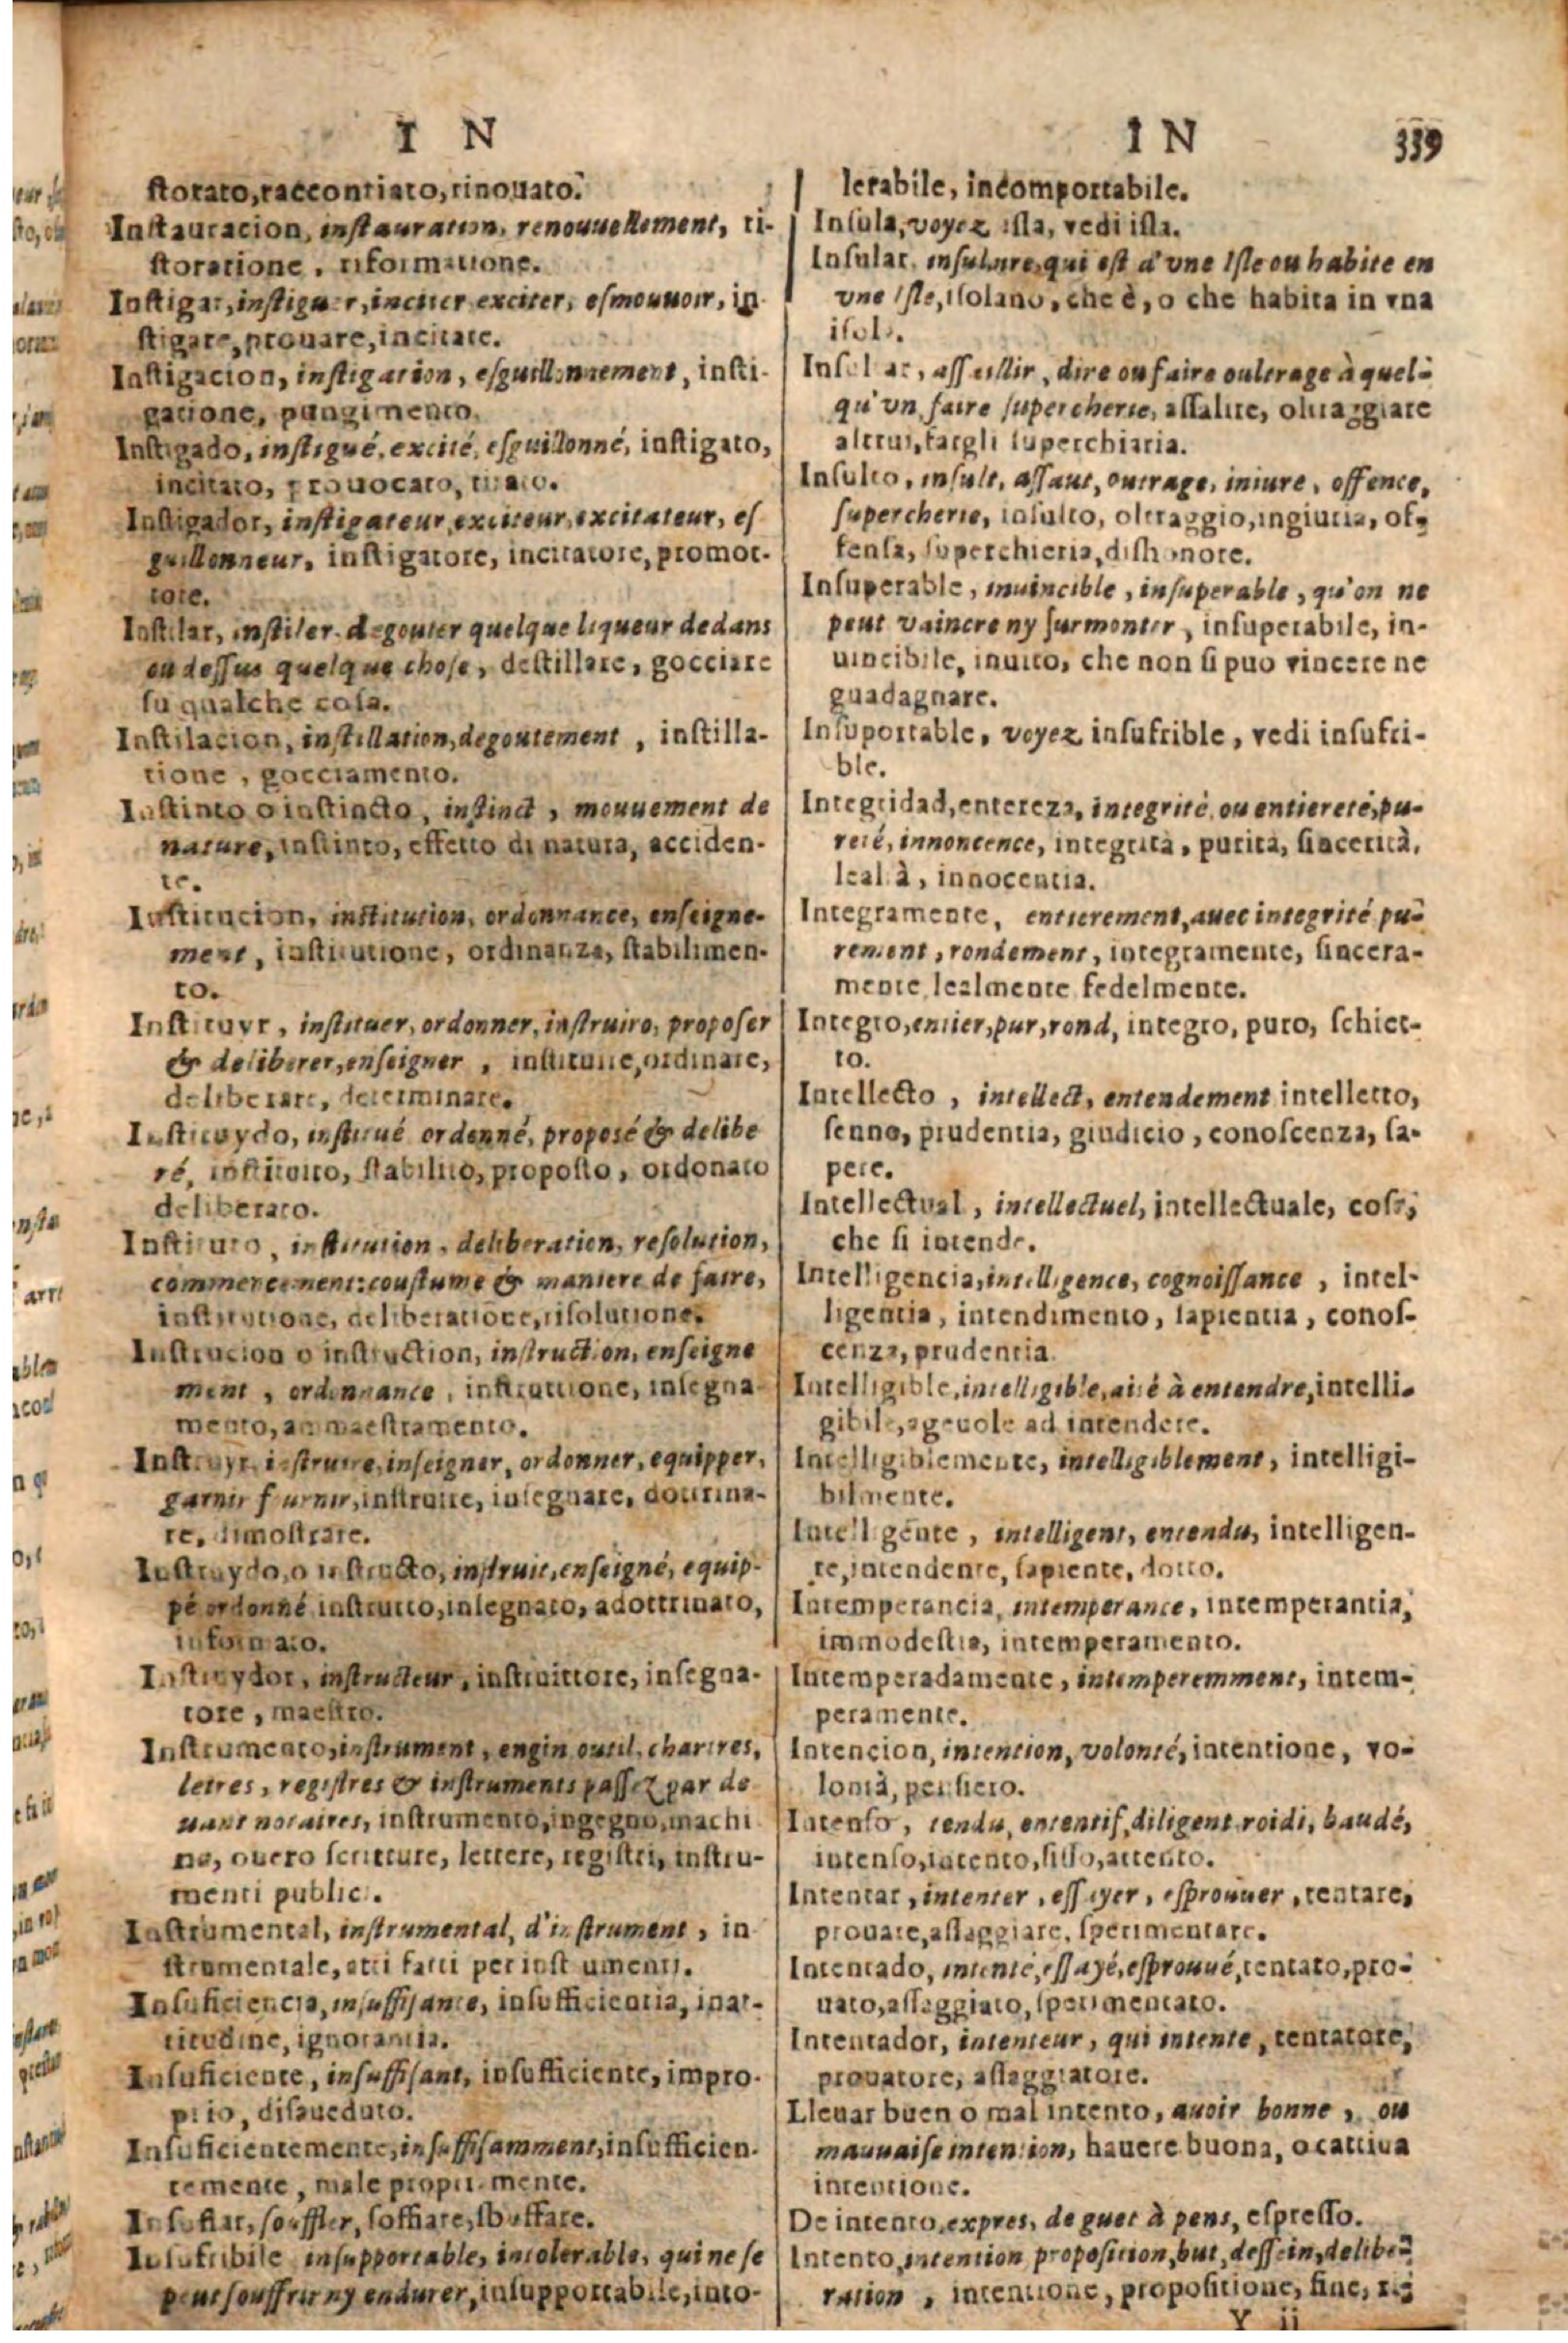 I N
storato, raccontiato, rinouato.
Instauracion, instauration, renouuellement, ri-
storatione, riformatione.
Instigar, instiguer, inciter exciter, esmouuoir, in
stigare, prouare, incitare.
Instigacion, instigation, esguillonnement, insti-
gatione, pungimento.
Instigado, instigué, excité, esguillonné, instigato,
incitato, prouocato, tirato.
Instigador, instigateur, exciteur, excitateur, es
guillonneur, instigatore, incitatore, promot-
tore.
Instilar, instiler. degouter quelque liqueur dedans
ou dessus quelque chose, destillare, gocciare
su qualche cosa.
Instilacion, instillation, degoutement, instilla-
tione, gocciamento.
Instinto o instincto, instinct, mouuement de
nature, instinto, effetto di natura, acciden-
te.
Institucion, institution, ordonnance, enseigne-
ment, institutione, ordinanza, stabilimen-
to.
Instituyr, instituer, ordonner, instruire, proposer
& deliberer, enseigner, instituire, ordinare,
deliberare, determinare.
Instituydo, institué ordonné, proposé & delibe
ré, instituito, stabilito, proposto, ordonato
deliberato.
Instituto, institution, deliberation, resolution,
commencement: coustume & maniere de faire,
institutione, deliberatione, risolutione.
Instrucion o instruction, instruction, enseigne
ment, ordonnance, instruttione, insegna-
mento, ammaestramento.
Instruyr, instruire, inseigner, ordonner, equipper,
garnir furnir, instruire, insegnare, dottrina-
re, dimostrare.
Instruydo, o instructo, instruit, enseigné, equip-
pé ordonné instrutto, insegnato, adottrinato,
informato.
Instruydor, instructeur, instruittore, insegna-
tore, maestro.
Instrumento, instrument, engin outil, chartres,
letres, registres & instruments passez par de
uant notaires, instrumento, ingegno, machi
na, ouero scritture, lettere, registri, instru-
menti public.
Instrumental, instrumental, d'instrument, in
strumentale, atti fatti per instumenti.
Insuficiencia, insuffisance, insufficientia, inat-
titudine, ignorantia.
Insuficiente, insuffisant, insufficiente, impro-
prio, disaueduto.
Insuficientemente, insuffisamment, insufficien-
temente, male propriamente.
Insuflar, souffler, soffiare, sbuffare.
Insufribile insupportable, intolerable, qui ne se
peut souffrir ny endurer, insupportabile, into-
IN 339
lerabile, incomportabile.
Insula, voyez isla, vedi isla.
Insular, insulaire, qui est d'vne Isle ou habite en
vne Isle, isolano, che è, o che habita in vna
isola.
Insultar, assaillir, dire ou faire oulerage à quel-
qu'vn, faire supercherie, assalire, oltraggiare
altrui, fargli superchiaria.
Insulto, insult, assaut, outrage, iniure, offence,
supercherie, insulto, oltraggio, ingiuria, of-
fensa, superchieria, dishonore.
Insuperable, inuincible, insuperable, qu'on ne
peut vaincre ny surmonter, insuperabile, in-
uincibile, inuito, che non si puo vincere ne
guadagnare.
Insuportable, voyez insufrible, vedi insufri-
ble.
Integridad, entereza, integrité, ou entiereté, pu-
reté, innoncence, integrità, purità, sincerità,
lealtà, innocentia.
Integramente, entierement, auec integrité pu-
rement, rondement, integramente, sincera-
mente, lealmente fedelmente.
Integro, entier, pur, rond, integro, puro, schiet-
to.
Intellecto, intellect, entendement intelletto,
senno, prudentia, giudicio, conoscenza, sa-
pere.
Intellectual, intellectuel, intellectuale, cosa,
che si intende.
Intelligencia, intelligence, cognoissance, intel-
ligentia, intendimento, sapientia, conos-
cenza, prudentia.
Intelligible, intelligible, aisé à entendre, intelli-
gibile, ageuole ad intendere.
Intelligiblemente, intelligiblement, intelligi-
bilmente.
Intelligente, intelligent, entendu, intelligen-
te, intendente, sapiente, dotto.
Intemperancia, intemperance, intemperantia,
immodestia, intemperamento.
Intemperadamente, intemperemment, intem-
peramente.
Intencion, intention, volonté, intentione, vo-
lontà, pensiero.
Intenso, tendu, ententif, diligent roidi, baudé,
intenso, intento, fisso, attento.
Intentar, intenter, essayer, esprouuer, tentare,
prouare, assaggiare, sperimentare.
Intentado, intenté, essayé, esprouué, tentato, pro-
uato, assaggiato, sperimentato.
Intentador, intenteur, qui intente, tentatore,
prouatore, assaggiatore.
Lleuar buen o mal intento, auoir bonne, ou
mauuaise intention, hauere buona, o cattiua
intentione.
De intento, expres, de guet à pens, espresso.
Intento, intention proposition, but, dessein, delibe-
ration, intentione, propositione, fine, ri-
Y ij